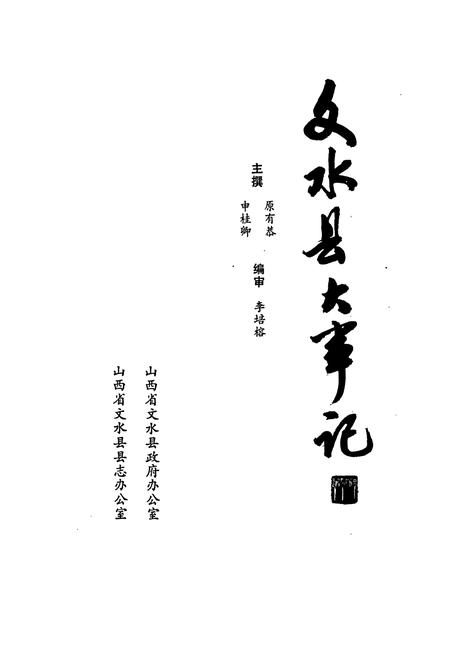 文水县大事记
主撰 原有恭
申桂卿
编审 李培榕
山西省文水县政府办公室
山西省文水县县志办公室